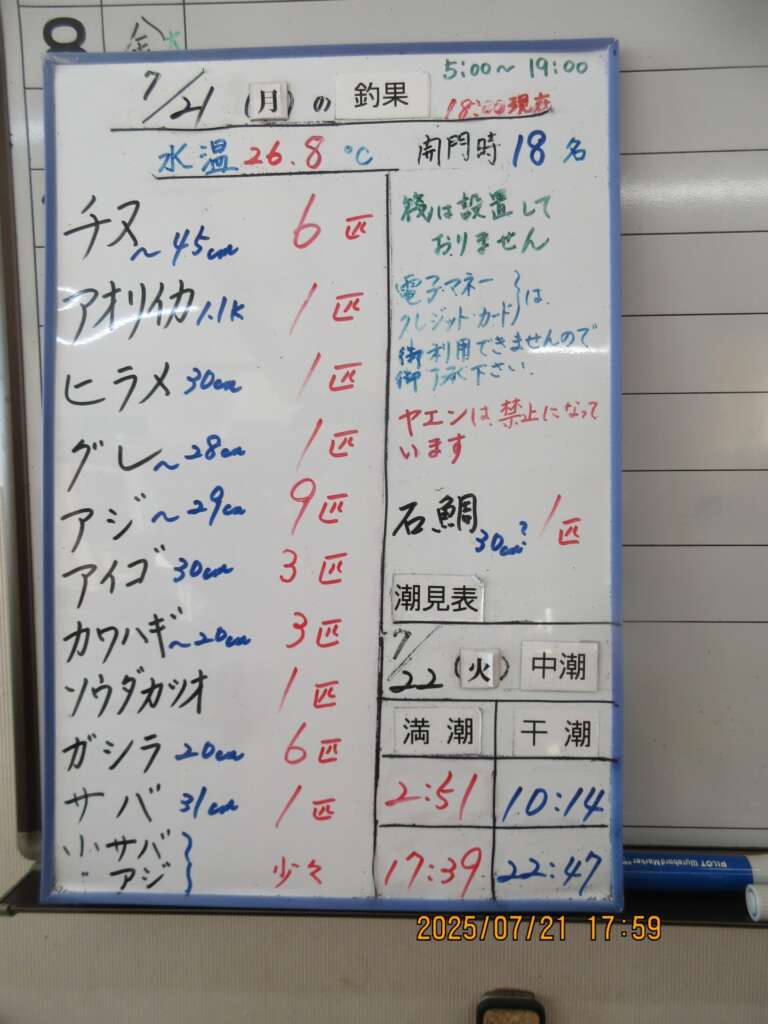 8 金
7/21(月)の 釣果
5:00～19:00
18:00現在
水温 26.8 ℃ 開門時 18名
チヌ ～45cm 6匹
アオリイカ 1.1K 1匹
ヒラメ 30cm 1匹
グレ ～28cm 1匹
アジ ～29cm 9匹
アイゴ 30cm 3匹
カワハギ ～20cm 3匹
ソウダカツオ 1匹
ガシラ 20cm 6匹
サバ 31cm 1匹
小サバ
〃アジ 少々
筏は設置して
おりません
電子マネー
クレジット・カード は
御利用できませんので
御了承下さい.
ヤエンは、禁止になって
います
石鯛 30cm? 1匹
潮見表
7/22(火) 中潮
満潮 干潮
2:51 10:14
17:39 22:47
PILOT WyteboardMarker
2025/07/21 17:59